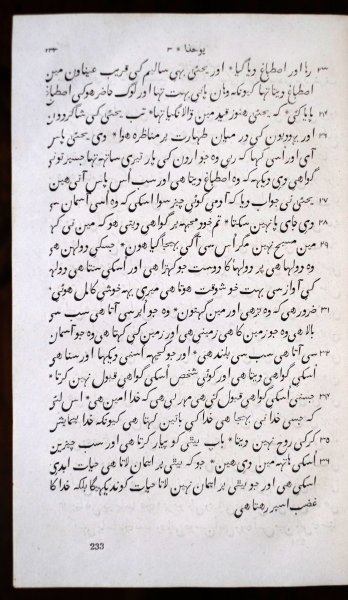 ۲۳۳ یوحنا * ۳
۲۳ رہا اور اصطباغ دیا گیا * اور یحیی بھی سالیم کی قریب عینون مین
اصطباغ دیتا تھا کیونکہ وہان پانی بہت تھا اور لوگ حاضر ہوکی اصطباغ
پاتا کئی * کہ یحیی هنوز قید مین ڈالا نگیا تھا * تب یحیی کی شاگردون
اور یہودیون کی درمیان طہارت پر مناظرہ هوا * وی یحیی پاس
آئی اور اسی کہا کہ ربی وہ جو اردن کی پار تیری ساتھ تھا جسپر تونی
گواهی دی دیکھہ کہ وہ اصطباغ دیتا هی اور سب اُس پاس آتی هین
۲۷ یحیی نی جواب دیا کہ آدمی کوئی چیز سوا اسکی کہ وہ اُسی آسمان سی
۲۸ دی جای پا نہین سکتا * تم خود مجھہ پر گواهی دیتی هو کہ مین نی کہا
۲۹ مین مسیح نہین مگر اُس سی آگی بہیجا گیا هون * جسکی دولہن هی
وہ دولہا هی پر دولہا کا دوست جو کہڑا هی اور اُسکی سنتا هی دولہا
کی آواز سی بہت خوشوقت هوتا هی میری یہہ خوشی کامل هوئی
۳۱ ضرور هی کہ وہ بڑهی اور مین گہٹون * وہ جو اُوپر سی آتا هی سب سی
بالا هی وہ جو زمین کا هی زمینی هی اور زمین کی کہتا هی وہ جو آسمان
سی آتا هی سب سی بلند هی * اور جو کچھہ اُسنی دیکہا اور سنا هی
اُسکی گواهی دیتا هی اور کوئی شخص اُسکی گواهی قبول نہین کرتا *
جسنی اُسکی گواهی قبول کی هی مہر کی هی کہ خدا امین هی * اس لئی
کہ جسی خدا نی بہیجا هی خدا کی باتین کہتا هی کیونکہ خدا پیمایش
۳۵ کرکی روح نہین دیتا * باپ بیٹی کو پیار کرتا هی اور سب چیزین
۳۶ اُسکی هاتھہ مین دی هین * جو کہ بیٹی پر ایمان لاتا هی حیات ابدی
اُسکی هی اور جو بیٹی پر ایمان نہین لاتا حیات کو ندیکہیگا بلکہ خدا کا
غضب اُسپر رهتا هی
233